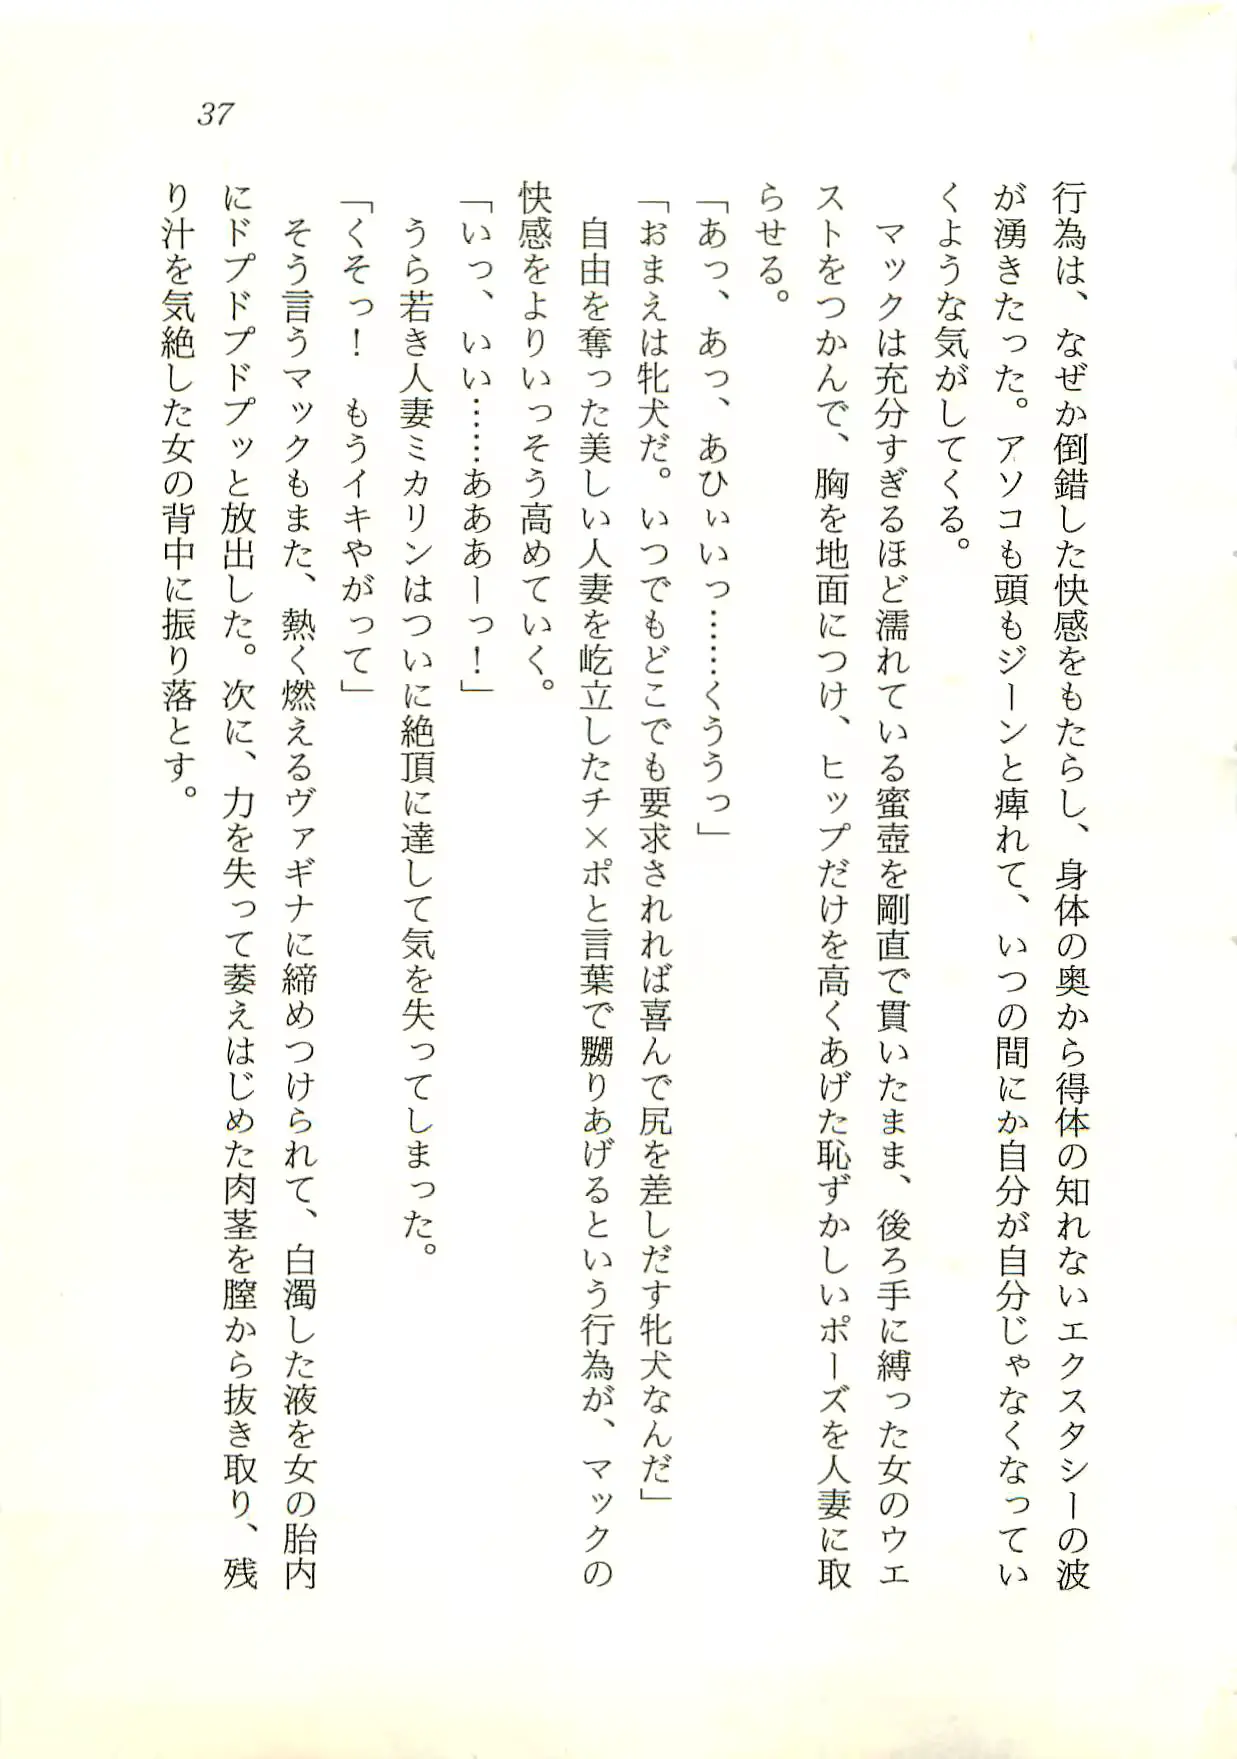 37
行為は、なぜか倒錯した快感をもたらし、身体の奥から得体の知れないエクスタシーの波
が湧きたった。アソコも頭もジーンと痺れて、いつの間にか自分が自分じゃなくなってい
くような気がしてくる。
　マックは充分すぎるほど濡れている蜜壺を剛直で貫いたまま、後ろ手に縛った女のウエ
ストをつかんで、胸を地面につけ、ヒップだけを高くあげた恥ずかしいポーズを人妻に取
らせる。
「あっ、あっ、あひぃいっ……くううっ」
「おまえは牝犬だ。いつでもどこでも要求されれば喜んで尻を差しだす牝犬なんだ」
　自由を奪った美しい人妻を屹立したチ×ポと言葉で嬲りあげるという行為が、マックの
快感をよりいっそう高めていく。
「いっ、いい……あああーっ！」
　うら若き人妻ミカリンはついに絶頂に達して気を失ってしまった。
「くそっ！　もうイキやがって」
　そう言うマックもまた、熱く燃えるヴァギナに締めつけられて、白濁した液を女の胎内
にドプドプドプッと放出した。次に、力を失って萎えはじめた肉茎を膣から抜き取り、残
り汁を気絶した女の背中に振り落とす。